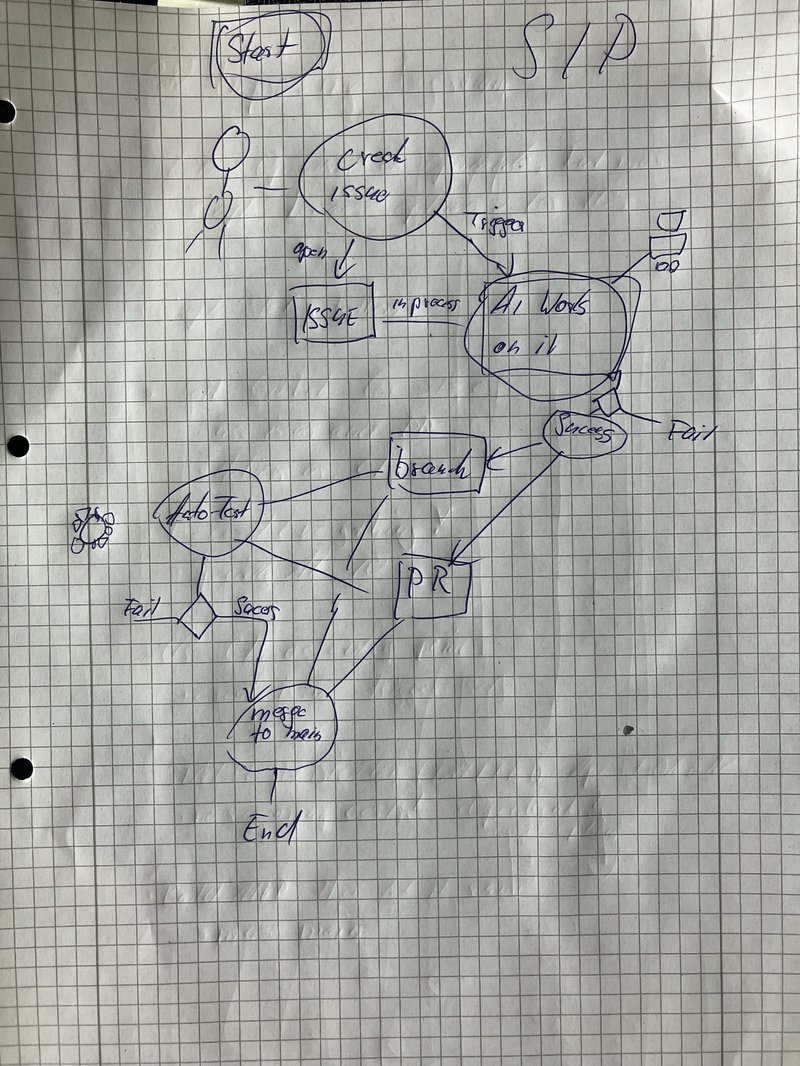 Start
SIP
Creat
ISSUE
Trigger
open
ISSUE
in process
AI Works
on it
Success
Fail
branch
Auto-Test
PR
Fail
Sucess
merge
to main
End